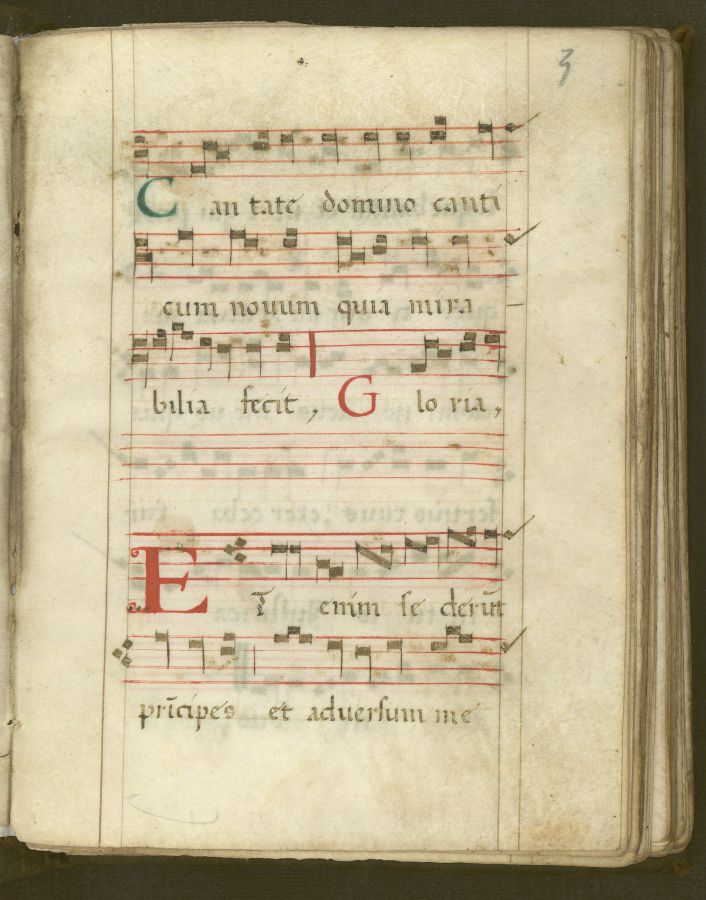 3
Can tate domino canti
cum novum quia mira
bilia fecit, Glo ria,
ET enim se derūt
pr̄icipes et adversum me